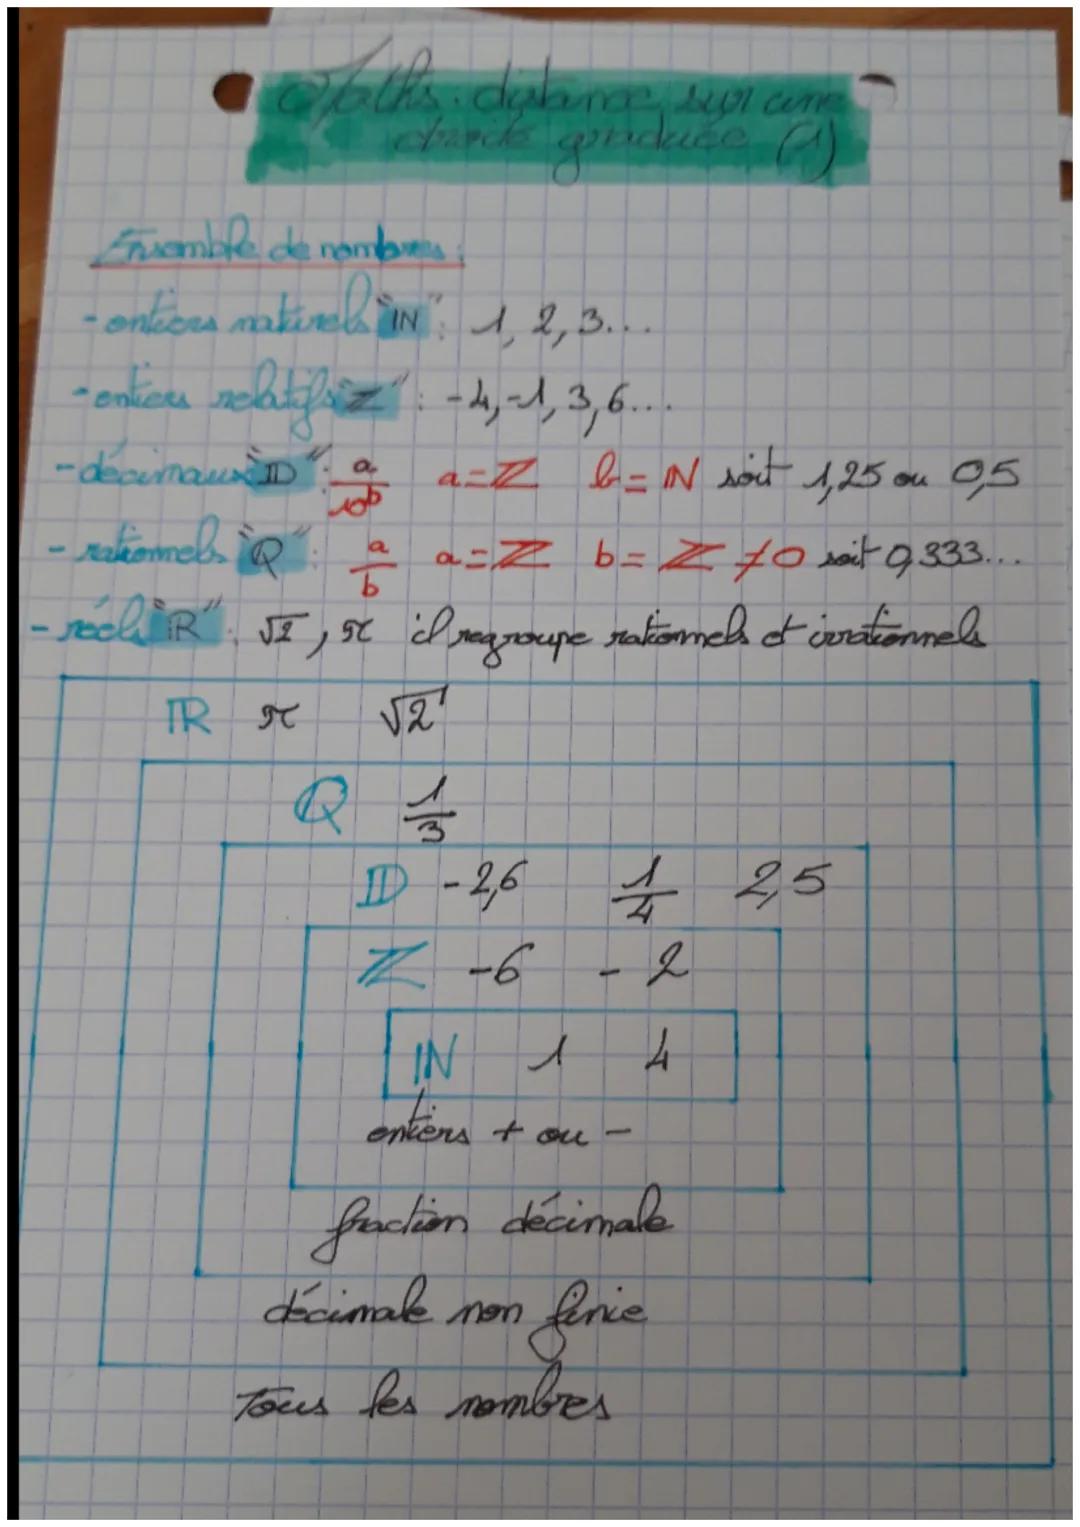 Maths: distance sur une
droite graduée (1)
Ensemble de nombres :
- entiers naturels "IN" : 1, 2, 3...
- entiers relatifs "Z" : -4, -1, 3, 6...
- décimaux "ID" : a/10^b a = Z b = IN soit 1,25 ou 0,5
- rationnels "Q" : a/b a = Z b = Z ≠ 0 soit 0,333...
- réels "IR" : √2, π il regroupe rationnels et irrationnels
IR π √2
Q 1/3
ID -2,6 1/4 2,5
Z -6 -2
IN 1 4
entiers + ou -
fraction décimale
décimale non finie
Tous les nombres